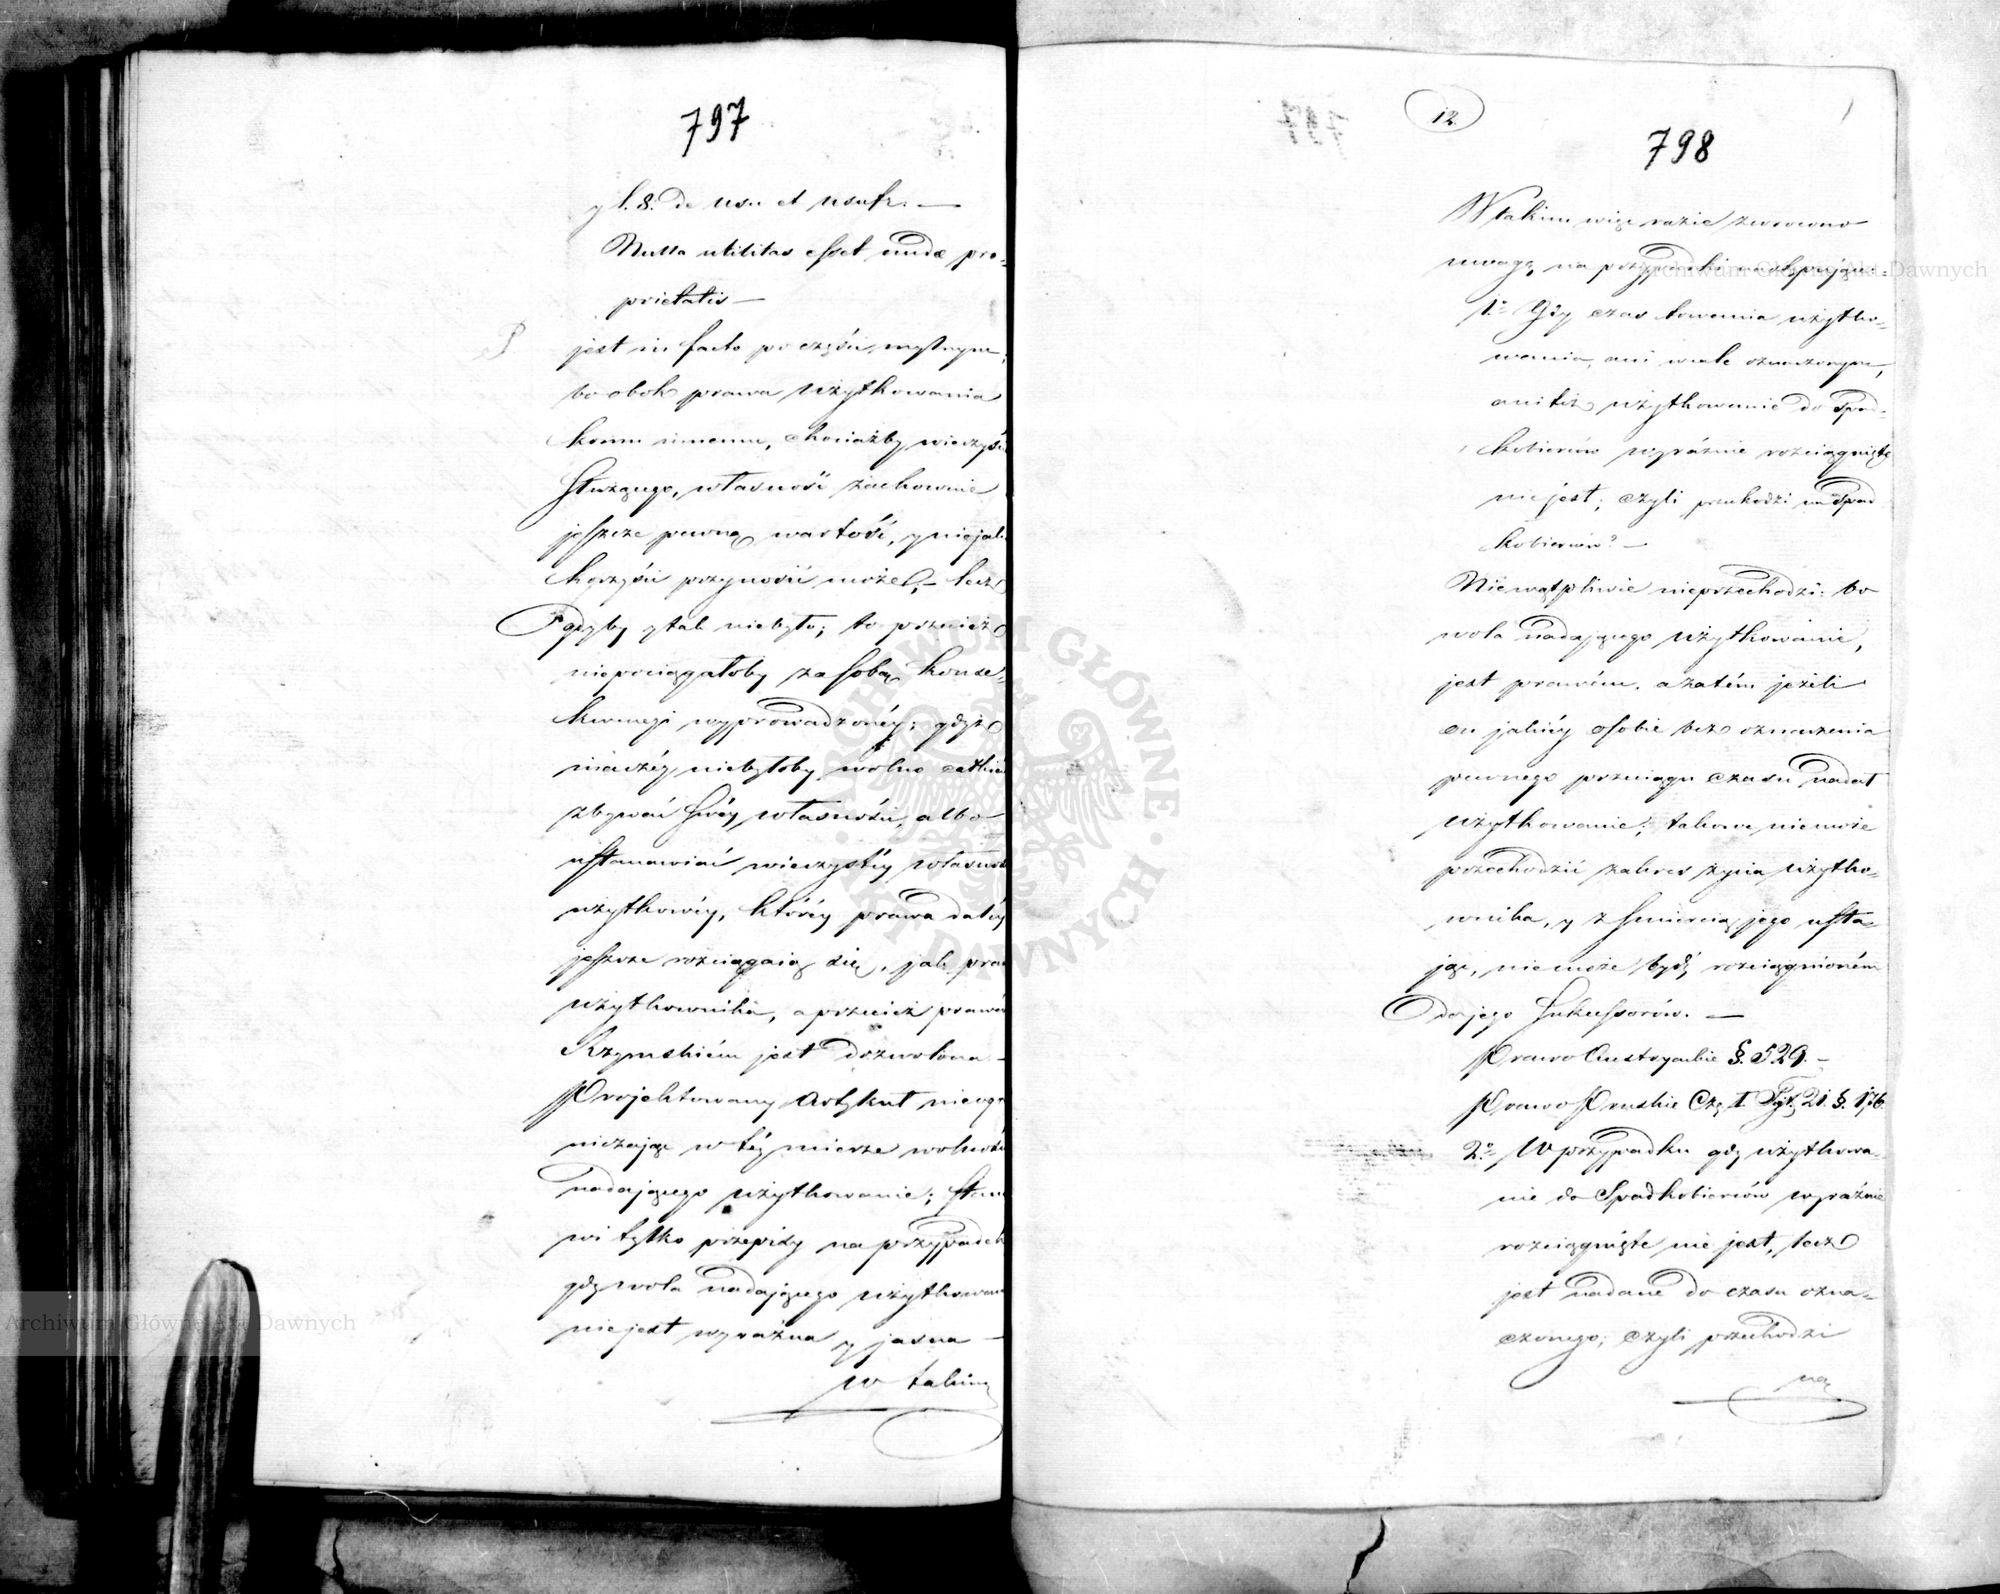 797
y l. 8. de usu et usufr. —
Nulla utilitas esset nudæ pro-
prietatis —
jest in facto po części mylnym,
bo obok prawa użytkowania
komu innemu, chociażby wieczyście
służącego, własność zachowuie
jeszcze pewną wartość, y niejak
korzyść przynosić może, — lecz
gdyby y tak niebyło; to przecież
niepociągałoby za sobą konse-
kwencyi wyprowadzonéy; gdyż
inaczéy niebyłoby wolno całkiem
zbywać swéy własności, albo
ustanawiać wieczystéy własność
użytkowéy, któréy prawa daléy
jeszcze rozciągaią się, jak praw
użytkownika, a przecież prawem
Rzymskiém jest dozwolona —
Projektowany Artykuł nieogra
niczając w téy mierze wolności
nadającego użytkowanie; stano
wi tylko przepisy na przypadek
gdy wola nadającego użytkowan
niejest wyraźna y jasna —
w takim
12.
798
W takim więc razie zwrócono
uwagę, na przypadki następujące:
1.° Gdy czas trwania użytko-
wania, ani wcale oznaczonym,
ani też użytkowanie do Spad-
kobierców wyraźnie rozciągnięte
niejest; czyli przechodzi na Spad
kobierców? —
Niewątpliwie nieprzechodzi: bo
wola nadającego użytkowanie,
jest prawém. a zatém jeżeli
on jakiéy osobie bez oznaczenia
pewnego przeciągu czasu nadał
użytkowanie; takowe niemoże
przechodzić zakres życia użytko-
wnika, y z śmiercią jego usta-
jąc, niemoże bydź rozciągnioném
do jego Sukcessorów. —
Prawo Austryackie §. 529. —
Prawo Pruskie Czę. I. Tyt. 21. §. 176.
2.° W przypadku gdy użytkowa-
nie do Spadkobierców wyraźnie
rozciągnięte nie jest, lecz
jest nadane do czasu ozna-
czonego; czyli przechodzi
na
Archiwum Główne Akt Dawnych
Archiwum Główne Akt Dawnych
ARCHIWUM GŁÓWNE AKT DAWNYCH